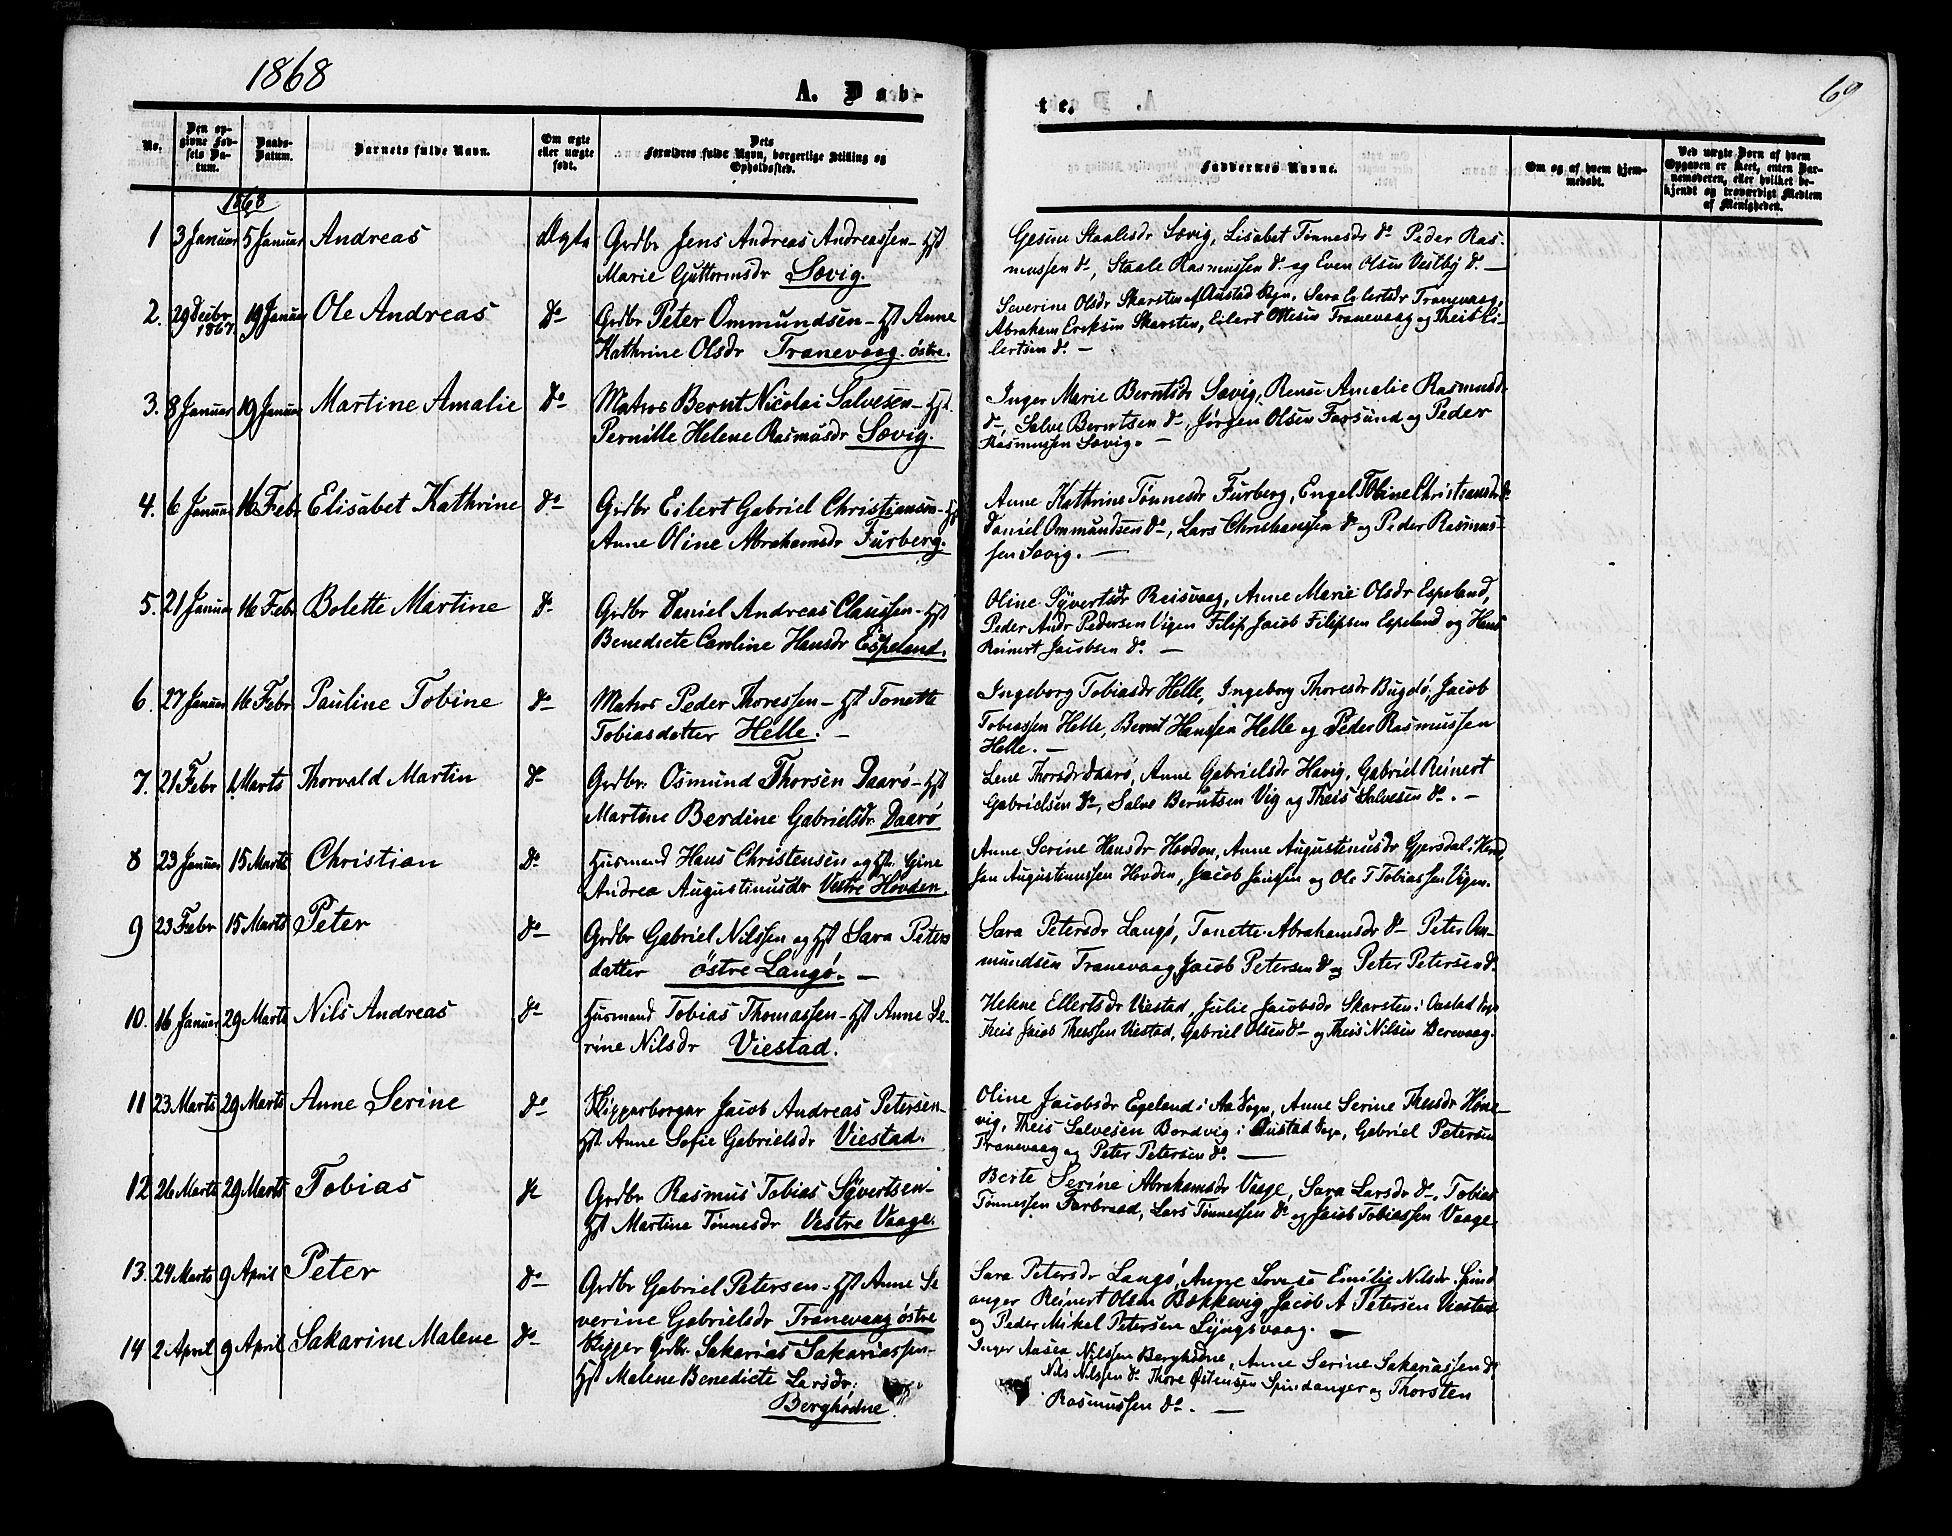 1868
A. Daab-
te.
69
No.
Den op-
givne Fød-
sels Da-
tum.
Daabs-
Datum.
Barnets fulde Navn.
Om ægte
eller uægte
født.
Dets
Forældres fulde Navn, borgerlige Stilling og
Opholdssted.
Faddernes Navne.
Om og af hvem hjem-
medøbt.
Ved uægte Børn af hvem
Opgaven er skeet, enten Bar-
nemoderen, eller hvilket be-
kjendt og troværdigt Medlem
af Menigheden.
1868
1 3 Januar 5 Januar Andreas Ægte Grdbr Jens Andreas Andreassen - Hst
Marie Guttormsdr Sævig.
Gesine Staalesdr Sævig, Lisabet Tønnesdr do Peder Ras-
mussen do, Staale Rasmussen do og Even Olsen Vestby do. —
2. 29 Decbr 1867 19 Januar Ole Andreas do Grdbr Peter Ommundsen - Hst Anne
Kathrine Olsdr Tranevaag østre.
Severine Olsdr Skarsten af Austad Sogn, Sara Eilertsdr Tranevaag,
Abraham Ericksen Skarsten, Eilert Ottesen Tranevaag og Theis Ei-
lertsen do. —
3. 8 Januar 19 Januar Martine Amalie do Matros Bernt Nicolai Salvesen - Hst.
Pernille Helene Rasmusdr Sævig.
Inger Marie Berntsdr Sævig, Amalie Rasmusdr
do, Salve Berntsen do, Jørgen Olsen Farsund og Peder
Rasmussen Sævig. —
4. 6 Januar 16 Febr Elisabet Kathrine do Grdbr Eilert Gabriel Christiansen - Hst
Anne Oline Abrahamsdr Furberg.
Anne Kathrine Tønnesdr Furberg, Engel Tobine Christiansdr do
Daniel Ommundsen do, Lars Christianssen do og Peder Rasmus-
sen Sævig. —
5. 21 Januar 16 Febr Bolette Martine do Grdbr Daniel Andreas Claussen - Hst
Benedicte Caroline Hansdr Espeland.
Oline Syvertsdr Reisvaag, Anne Marie Olsdr Espeland,
Peder Andr Pedersen Vigen Filip Jacob Filipsen Espeland og Hans
Reinert Jacobsen do. —
6. 27 Januar 16 Febr Pauline Tobine do Matros Peder Thoressen - Hst Tonette
Tobiasdatter Helle. —
Ingeborg Tobiasdr Helle, Ingeborg Thoresdr Bugdø, Jacob
Tobiassen Helle, Bernt Hanssen Helle og Peder Rasmussen
Helle. —
7. 21 Febr 1 Marts Thorvald Martin do Grdbr. Osmund Thorsen Daarø - Hst
Martine Berdine Gabrielsdr Daarø
Lene Thorsdr Daarø, Anne Gabrielsdr Havig, Gabriel Reinert
Gabrielsen do, Salve Berntsen Vig og Theis Salvesen do. —
8 23 Januar 15 Marts Christian do Husmand Hans Christensen og Hst. Gine
Andrea Augustinusdr Vestre Hovden.
Anne Serine Hansdr Hovden, Anne Augustinusdr Gjersdal i
Augustinussen Hovden, Jacob Janssen og Ole T Tobiassen Vigen.
9 23 Febr 15 Marts Peter do Grdbr Gabriel Nilssen og Hst Sara Peters
datter østre Langø. —
Sara Petersdr Langø, Tonette Abrahamsdr do Peter Om-
mundsen Tranevaag, Jacob Petersen do og Peter Petersen do.
10. 16 Januar 29 Marts Nils Andreas do Husmand Tobias Thomassen - Hst Anne Se-
rine Nilsdr Viestad.
Helene Ellertsdr Viestad, Julie Jacobsdr Skarsten i Oustad Sogn
Theis Jacob Theissen Viestad, Gabriel Olsen do og Theis Nilsen Berevaag.
11 23 Marts 29 Marts Anne Serine do Skipperborger Jacob Andreas Petersen -
Hst Anne Sofie Gabrielsdr Viestad.
Oline Jacobsdr Egeland i Aa Sogn, Anne Serine Theisdr Høne-
vig, Theis Salvesen Bordvig i Austad Sogn, Gabriel Petersen
Tranevaag og Peter Petersen do. —
12 26 Marts 29 Marts Tobias do Grdbr Rasmus Tobias Syvertsen -
Hst Martine Tønnesdr Vestre Vaage.
Berte Serine Abrahamsdr Vaage, Sara Larsdr do, Tobias
Tønnessen Farbraad, Lars Tønnessen do og Jacob Tobiassen Vaage.
13. 24 Marts 9 April Peter do Grdbr Gabriel Petersen - Hst Anne Se
verine Gabrielsdr Tranevaag østre
Sara Petersdr Langø, Anne Lovise Emilie Nilsdr Spind
anger Reinert Olsen Bækkevig Jacob A Petersen Viestad
og Peder Mikal Petersen Lyngsvaag. —
14 2 April 9 April Sakarine Malene do Skipper Grdbr Sakarias Sakariassen -
Hst Malene Benedicte Larsdr.
Berghødne
Inger Aasea Nilssen Berghødne, Anne Serine Sakariassen do
Nils Nilssen do Thore Østensen Spindanger og Thorsten
Rasmussen do. —